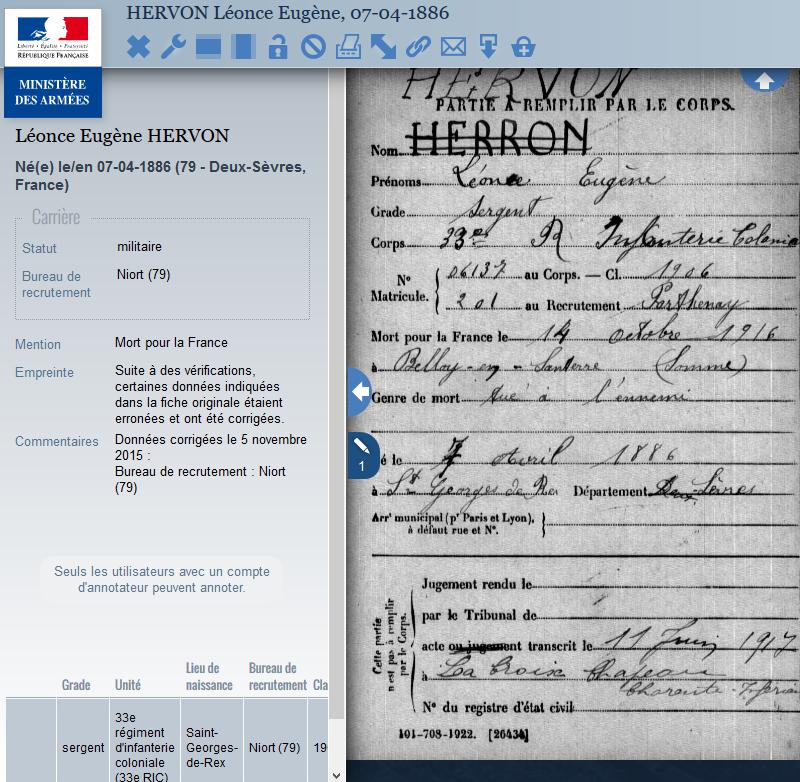 HERVON Léonce Eugène, 07-04-1886
Liberté • Égalité • Fraternité
RÉPUBLIQUE FRANÇAISE
MINISTÈRE
DES ARMÉES
Léonce Eugène HERVON
Né(e) le/en 07-04-1886 (79 - Deux-Sèvres,
France)
Carrière
Statut militaire
Bureau de recrutement Niort (79)
Mention Mort pour la France
Empreinte Suite à des vérifications,
certaines données indiquées
dans la fiche originale étaient
erronées et ont été corrigées.
Commentaires Données corrigées le 5 novembre
2015 :
Bureau de recrutement : Niort
(79)
Seuls les utilisateurs avec un compte
d'annotateur peuvent annoter.
Grade Unité Lieu de naissance Bureau de recrutement Cla
sergent 33e régiment d'infanterie coloniale (33e RIC) Saint-Georges-de-Rex Niort (79) 19
HERVON
PARTIE À REMPLIR PAR LE CORPS.
Nom HERRON
Prénoms Léonce Eugène
Grade Sergent
Corps 33e R Infanterie Colonia
N° Matricule. 06137 au Corps. — Cl. 1906
201 au Recrutement Parthenay
Mort pour la France le 14 octobre 1916
à Belloy-en-Santerre (Somme)
Genre de mort tué à l'ennemi
1
é le 7 Avril 1886
à St Georges de Rex Département Deux-Sèvres
Arrt municipal (pr Paris et Lyon),
à défaut rue et N°.
Cette partie
n'est pas à remplir
par le Corps.
Jugement rendu le
par le Tribunal de
acte ou jugement transcrit le 11 Juin 1917
à La Croix Chapeau
Charente-Inférieu
N° du registre d'état civil
101-708-1922. [26434]